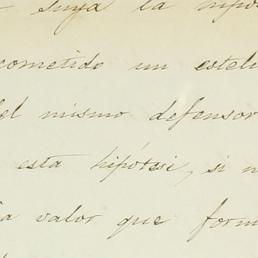 suya la hipó
cometido un esteli
del mismo defensor
esta hipótesi, si n
valor que form